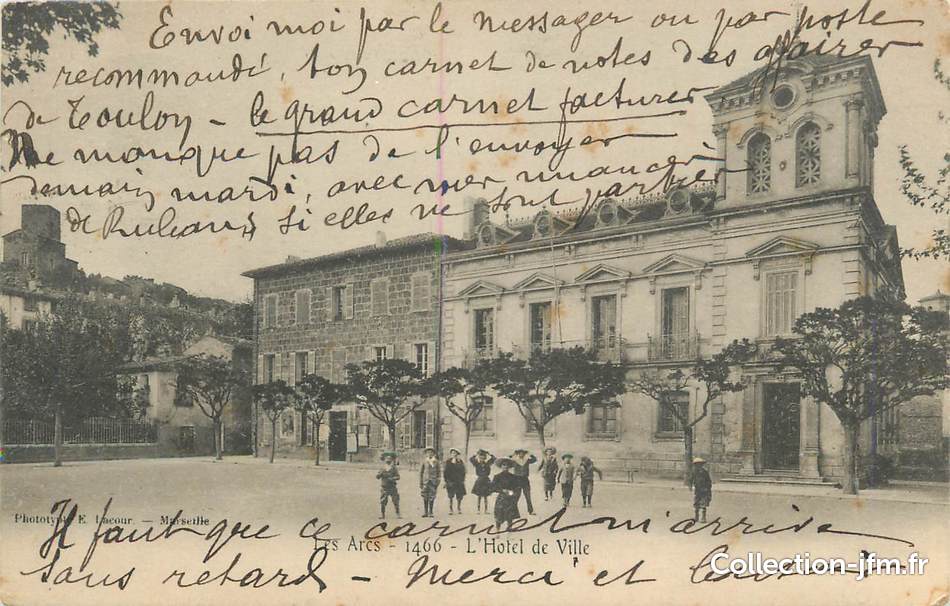 Envoi moi par le messager ou par poste
recommandé, ton carnet de notes des affaires
de Toulon - le grand carnet facturer
Ne manque pas de l'envoyer
demain mardi, avec mes nuances
de Rubans si elles ne sont parties
Phototypie E. Lacour. - Marseille
Les Arcs - 1466 - L'Hotel de Ville
Il faut que ce carnet m'arrive
sans retard - Merci et
Collection-jfm.fr